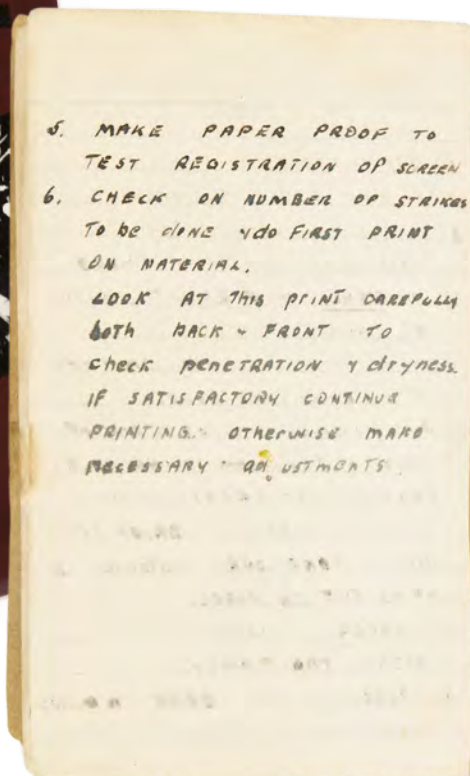 5. MAKE PAPER PROOF TO
TEST REGISTRATION OF SCREEN
6. CHECK ON NUMBER OF STRIKES
To be done & do FIRST PRINT
ON MATERIAL.
LOOK AT This print CAREFULLY
both BACK & FRONT TO
check peneTRATION & dryness.
IF SATISFACTORY CONTINUE
PRINTING. OTherwise MAKE
NECESSARY adjUSTMENTS.